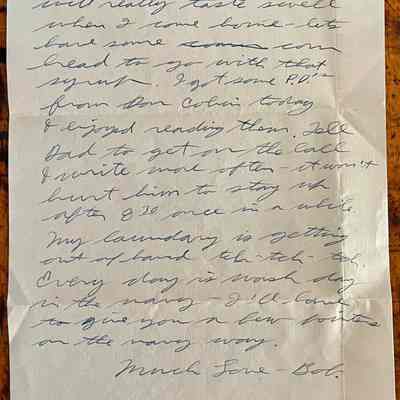 will really taste swell
when I come home - lets
have some corn
bread to go with that
syrup. I got some P.D.'s
from Don Cohin today
I enjoyed reading them. Tell
Dad to get on the ball
& write more often - it won't
hurt him to stay up
after 8³⁰ once in a while.
My laundry is getting
out of hand tch-tch-tch.
Every day is wash day
in the navy - I'll have
to give you a few pointers
on the navy way.
Much Love - Bob.